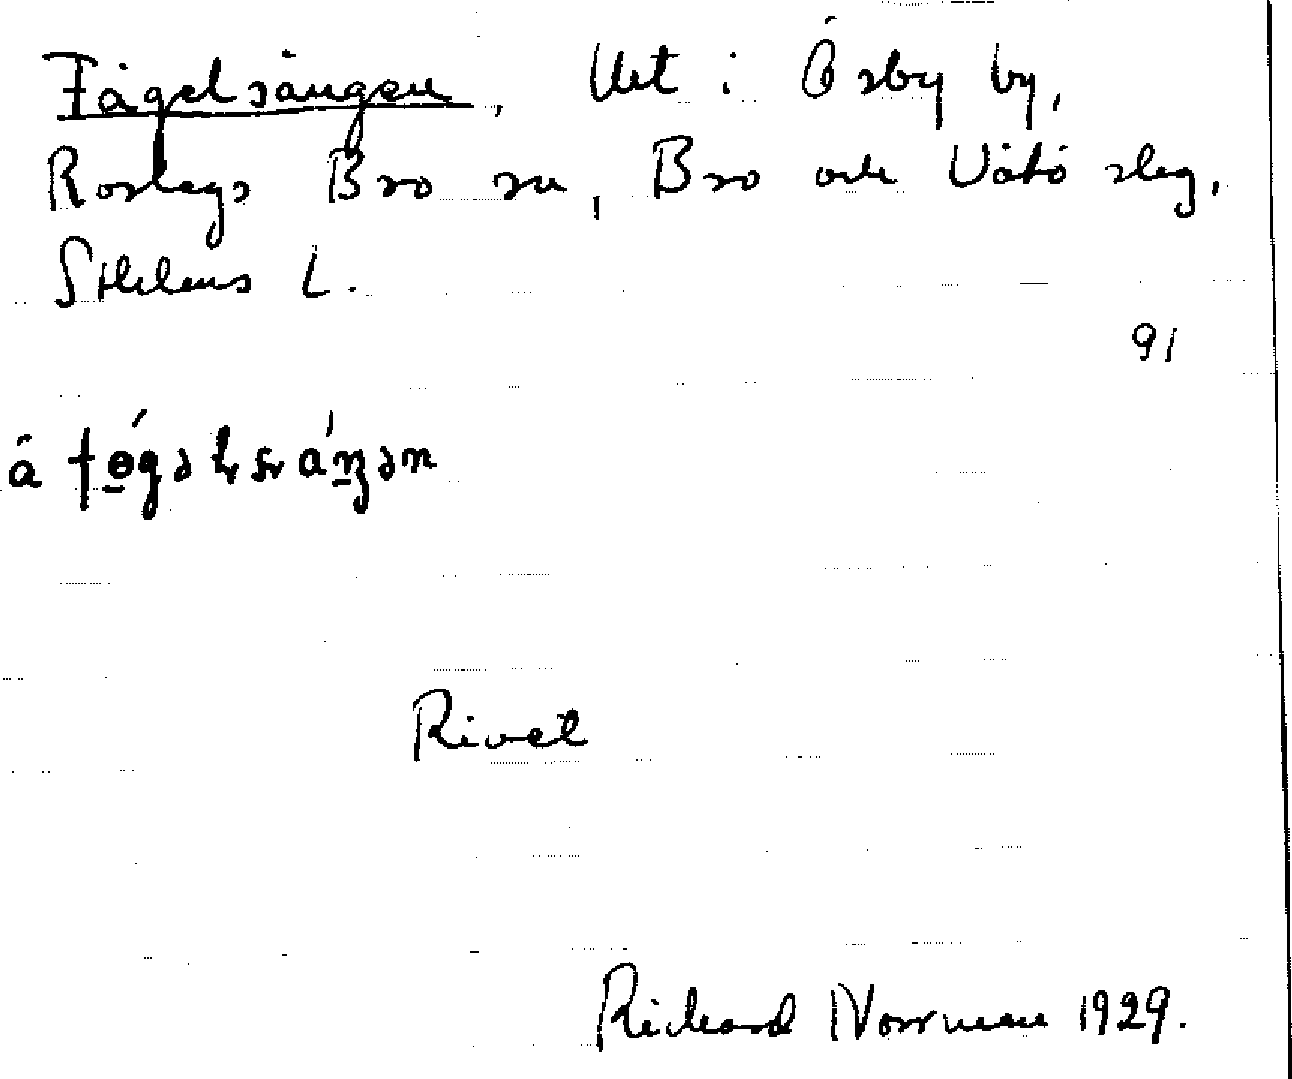 Fågelsången, Utt i Ösby by,
Roslags Bro sn, Bro och Vätö slag,
Sthlms L.
91
Rivet
Richard Norrman 1929.